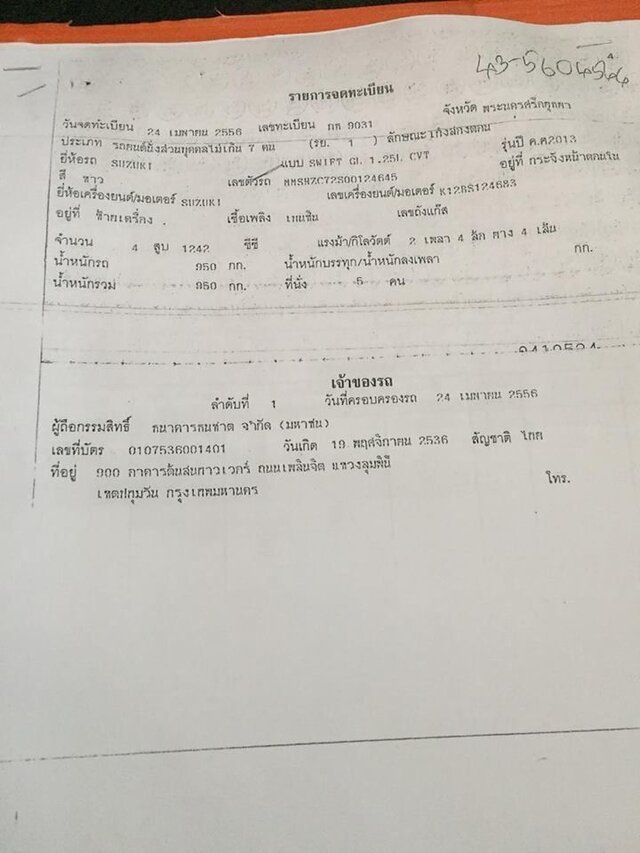 43-560454
รายการจดทะเบียน
วันจดทะเบียน 24 เมษายน 2556 เลขทะเบียน กก 9031 จังหวัด พระนครศรีอยุธยา
ประเภท รถยนต์นั่งส่วนบุคคลไม่เกิน 7 คน (รย. 1 ) ลักษณะ เก๋งสองตอน
ยี่ห้อรถ SUZUKI แบบ SWIFT GL 1.25L CVT รุ่นปี ค.ศ2013
สี ขาว เลขตัวรถ MMSHZC72S00124645 อยู่ที่ กระจังหน้าตอนใน
ยี่ห้อเครื่องยนต์/มอเตอร์ SUZUKI เลขเครื่องยนต์/มอเตอร์ K12BS124683
อยู่ที่ ซ้ายเครื่อง เชื้อเพลิง เบนซิน เลขถังแก๊ส
จำนวน 4 สูบ 1242 ซีซี แรงม้า/กิโลวัตต์ 2 เพลา 4 ล้อ ยาง 4 เส้น
น้ำหนักรถ 950 กก. น้ำหนักบรรทุก/น้ำหนักลงเพลา กก.
น้ำหนักรวม 950 กก. ที่นั่ง 5 คน
เจ้าของรถ
ลำดับที่ 1 วันที่ครอบครองรถ 24 เมษายน 2556
ผู้ถือกรรมสิทธิ์ ธนาคารธนชาต จำกัด (มหาชน)
เลขที่บัตร 0107536001401 วันเกิด 19 พฤศจิกายน 2536 สัญชาติ ไทย
ที่อยู่ 900 อาคารต้นสนทาวเวอร์ ถนนเพลินจิต แขวงลุมพินี
เขตปทุมวัน กรุงเทพมหานคร โทร.